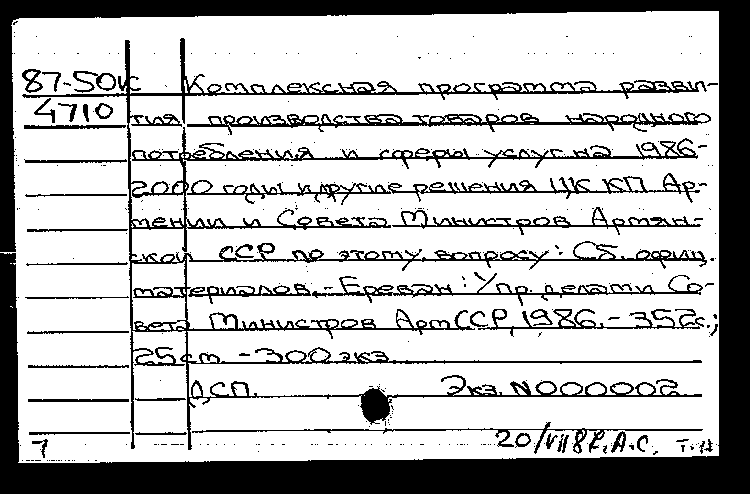 87-50к Комплексная программа разви-
4710 тия производства товаров народного
потребления и сферы услуг на 1986-
2000 годы и другие решения ЦК КП Ар-
мении и Совета Министров Армян-
ской ССР по этому вопросу: Сб. офиц.
материалов.- Ереван: Упр. делами Со-
вета Министров АрмССР, 1986.- 352с.;
25см. - 300 экз.
ДСП. Экз. N000002
20/VII 87. А.С. Т.
1